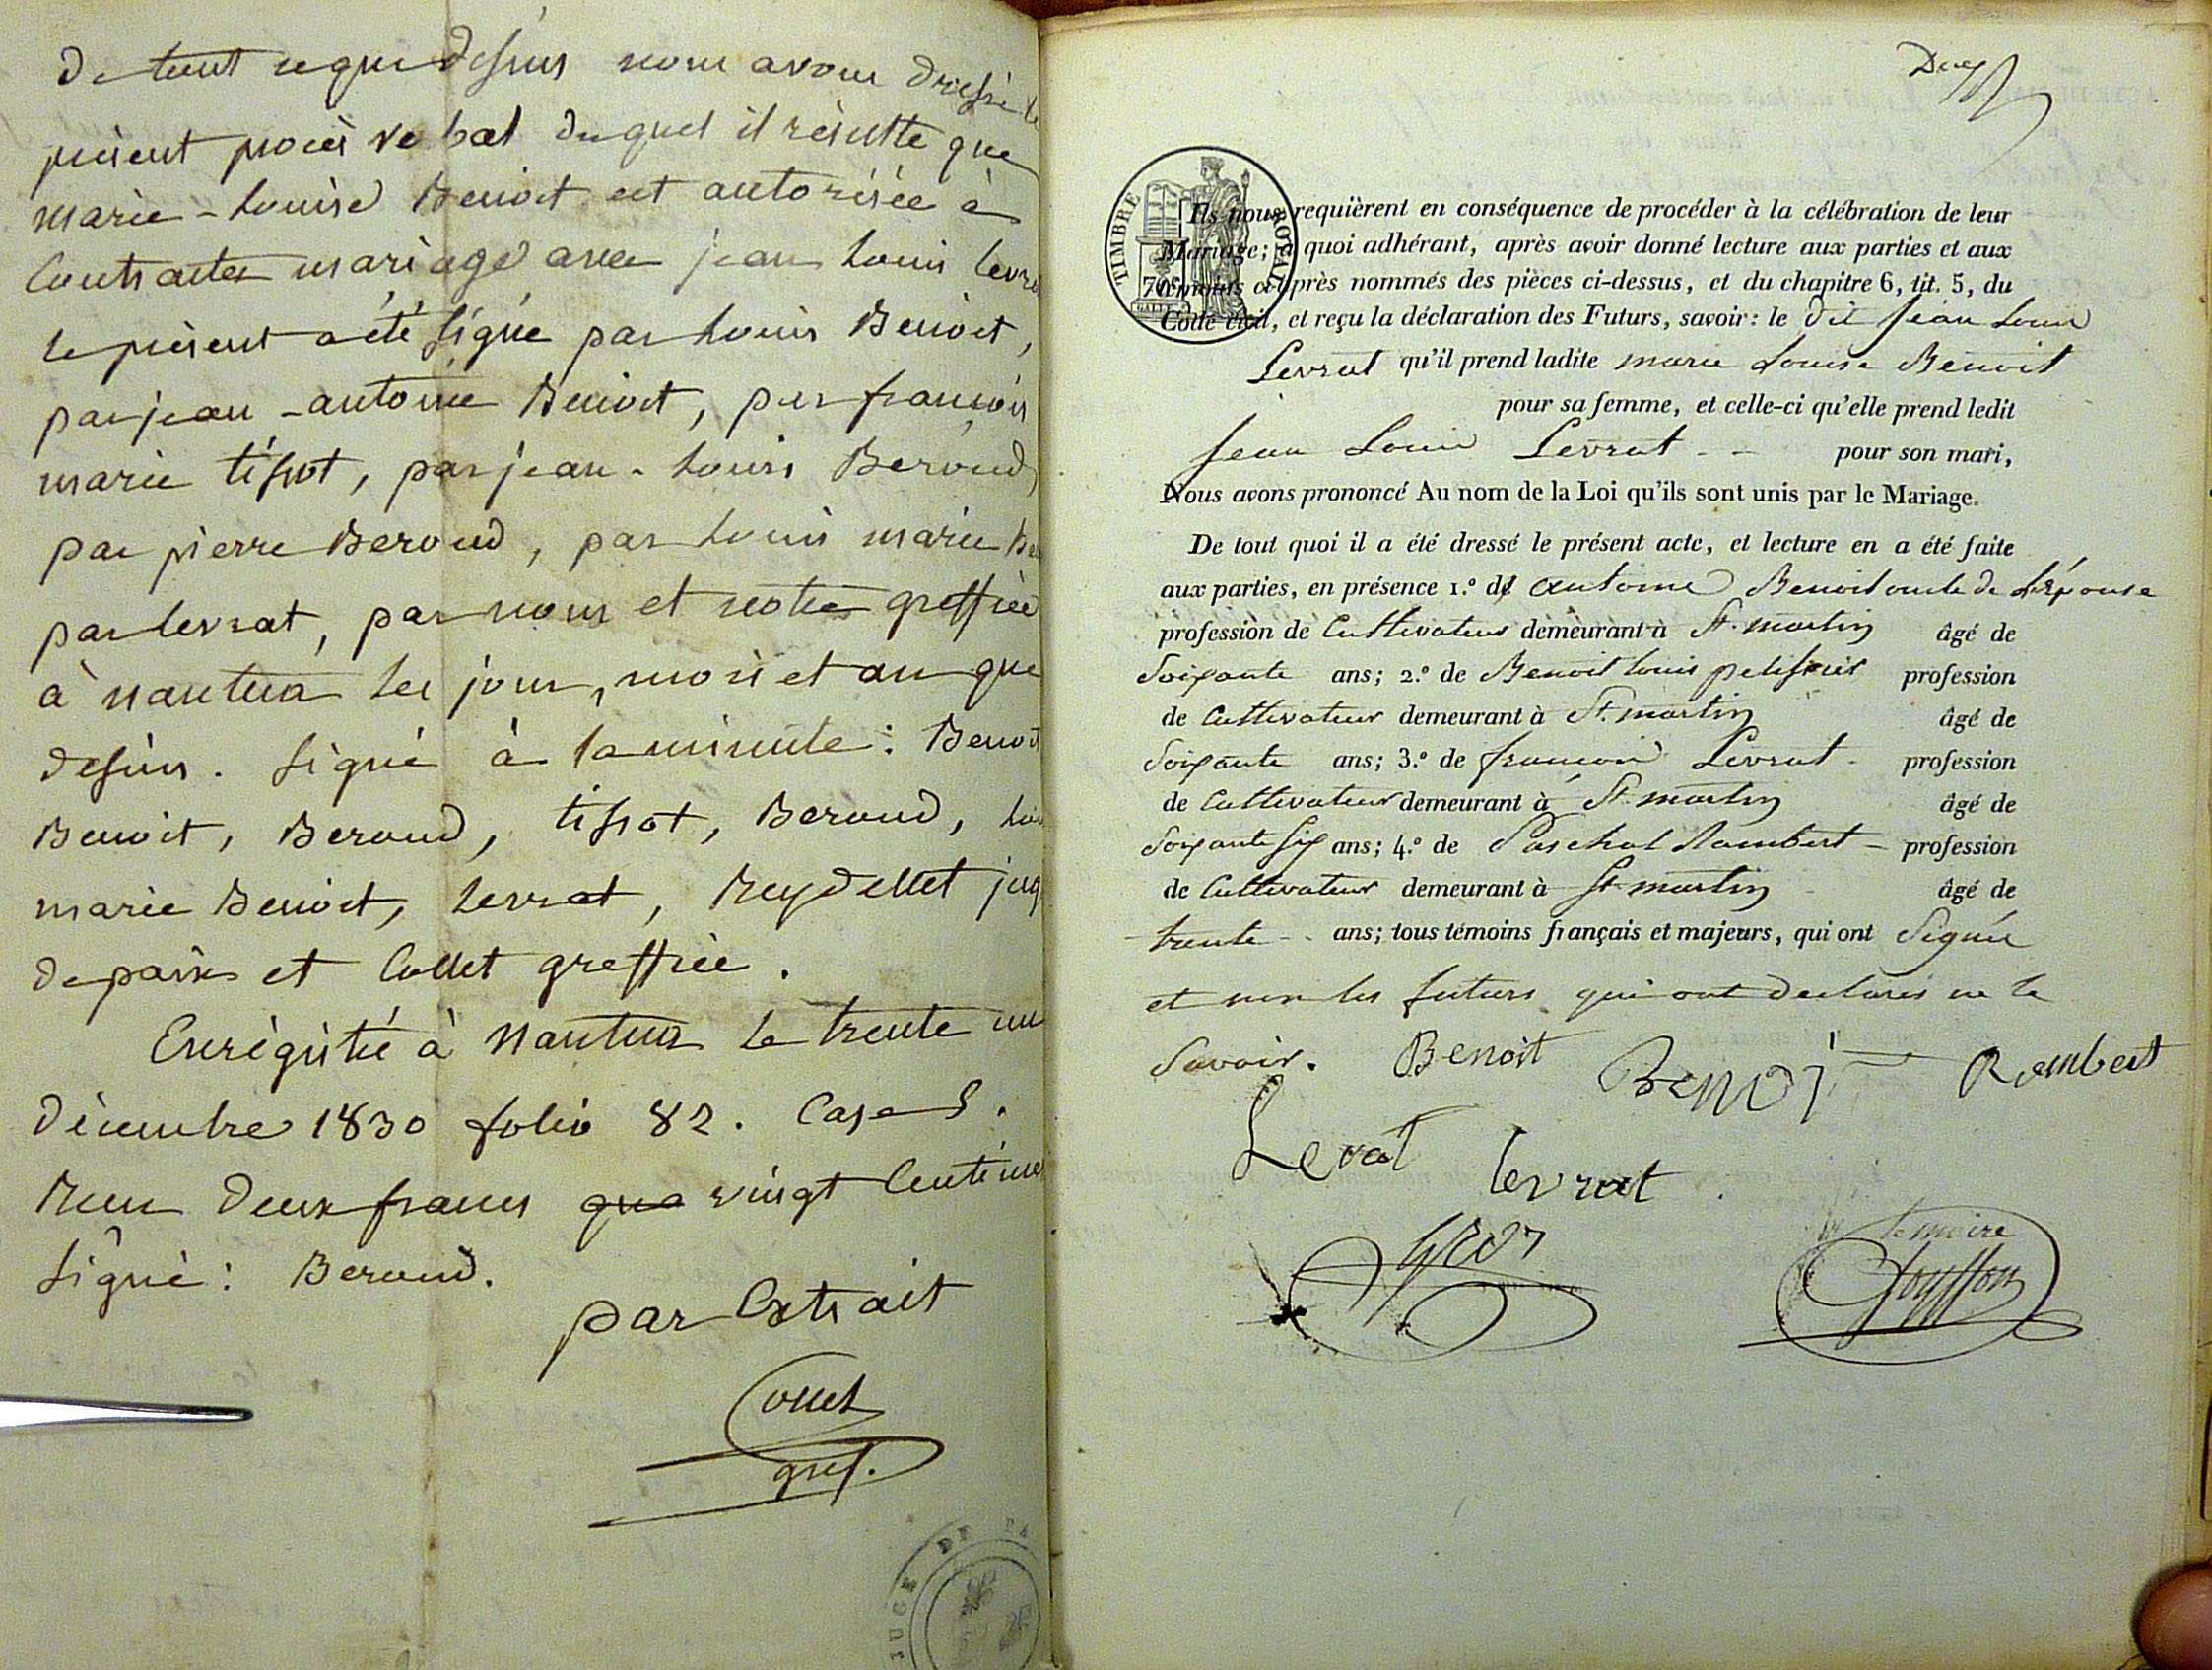 De tout ce que dessus nous avons dressé le
présent procès verbal duquel il résulte que
marie-Louise Benoit est autorisée à
Contracter mariage avec jean Louis Levrat
le présent a été signé par Louis Benoit,
par jean-antoine Benoit, par françois
marie tissot, par jean-Louis Beroud,
par pierre Beroud, par Louis marie Be
par Levrat, par nous et notre greffier
à nantua les jour, mois et an que
dessus. Signé à la minute: Benoit
Benoit, Beroud, tissot, Beroud, Louis
marie Benoit, Levrat, Reydellet juge
de paix et Collet greffier.
Enregistré à Nantua le trente un
décembre 1830 folio 82. Case
Reçu deux francs qua vingt Centimes
Signé: Beroud.
par Extrait
Collet
gref.
JUGE DE PA
TIMBRE ROYAL
70c
Ils nous requièrent en conséquence de procéder à la célébration de leur
Mariage; à quoi adhérant, après avoir donné lecture aux parties et aux
témoins ci-après nommés des pièces ci-dessus, et du chapitre 6, tit. 5, du
Code civil, et reçu la déclaration des Futurs, savoir: le dit Jean Louis
Levrat qu'il prend ladite marie Louise Benoit
pour sa femme, et celle-ci qu'elle prend ledit
Jean Louis Levrat - - pour son mari,
Nous avons prononcé Au nom de la Loi qu'ils sont unis par le Mariage.
De tout quoi il a été dressé le présent acte, et lecture en a été faite
aux parties, en présence 1.º d' antoine Benoit oncle de L'épouse
profession de Cultivateur demeurant à St. martin âgé de
Soixante ans; 2.º de Benoit Louis profession
de Cultivateur demeurant à St. martin âgé de
Soixante ans; 3.º de françois Levrat - profession
de Cultivateur demeurant à St. martin âgé de
Soixante six ans; 4.º de Paschal Rambert - profession
de Cultivateur demeurant à St martin âgé de
trente - - ans; tous témoins français et majeurs, qui ont Signés
et non les futurs qui ont déclarés ne le
Savoir. Benoit Benoi Rambert
Levat levrat
le maire